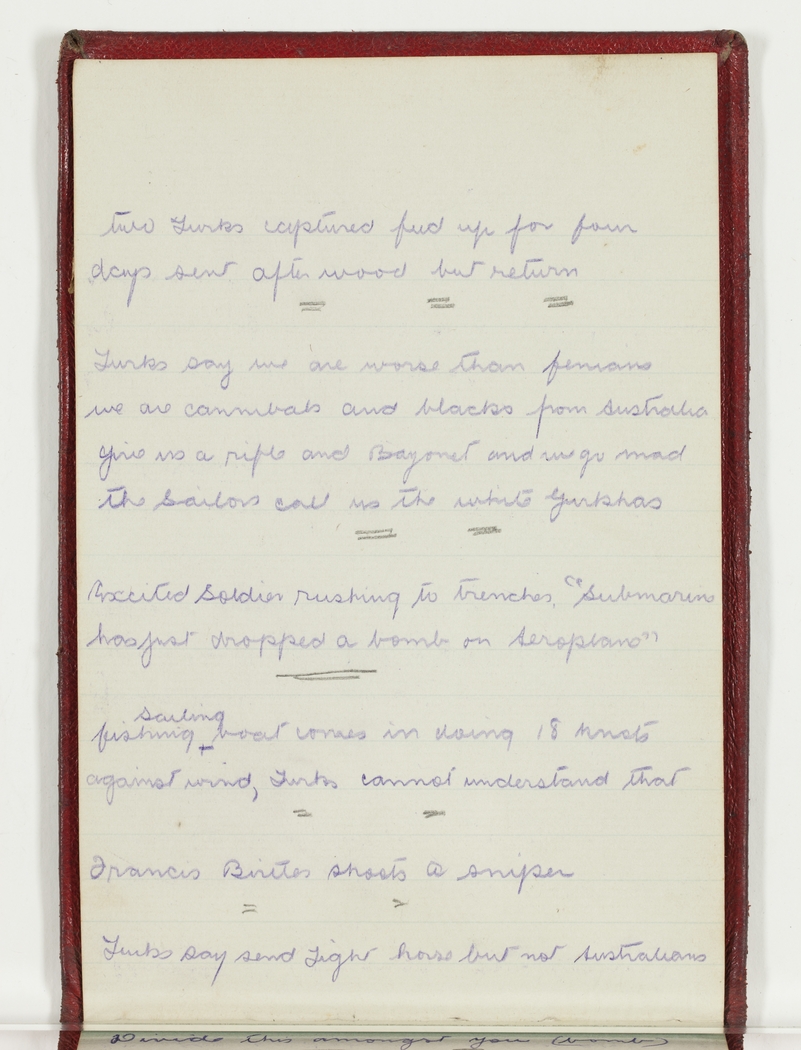 two Turks captured fed up for four
days sent after wood but return
Turks say we are worse than fenians
we are cannibals and blacks from Australia
Give us a rifle and Bayonet and we go mad
the Sailors call us the white Gurkhas
Excited Soldier rushing to trenches, "Submarine
has just dropped a bomb on Aeroplane"
sailing
fishing boat comes in doing 18 knots
against wind, Turks cannot understand that
Francis Birtles shoots a sniper
Turks say send Light horse but not Australians
Divide this amongst you (bomb)